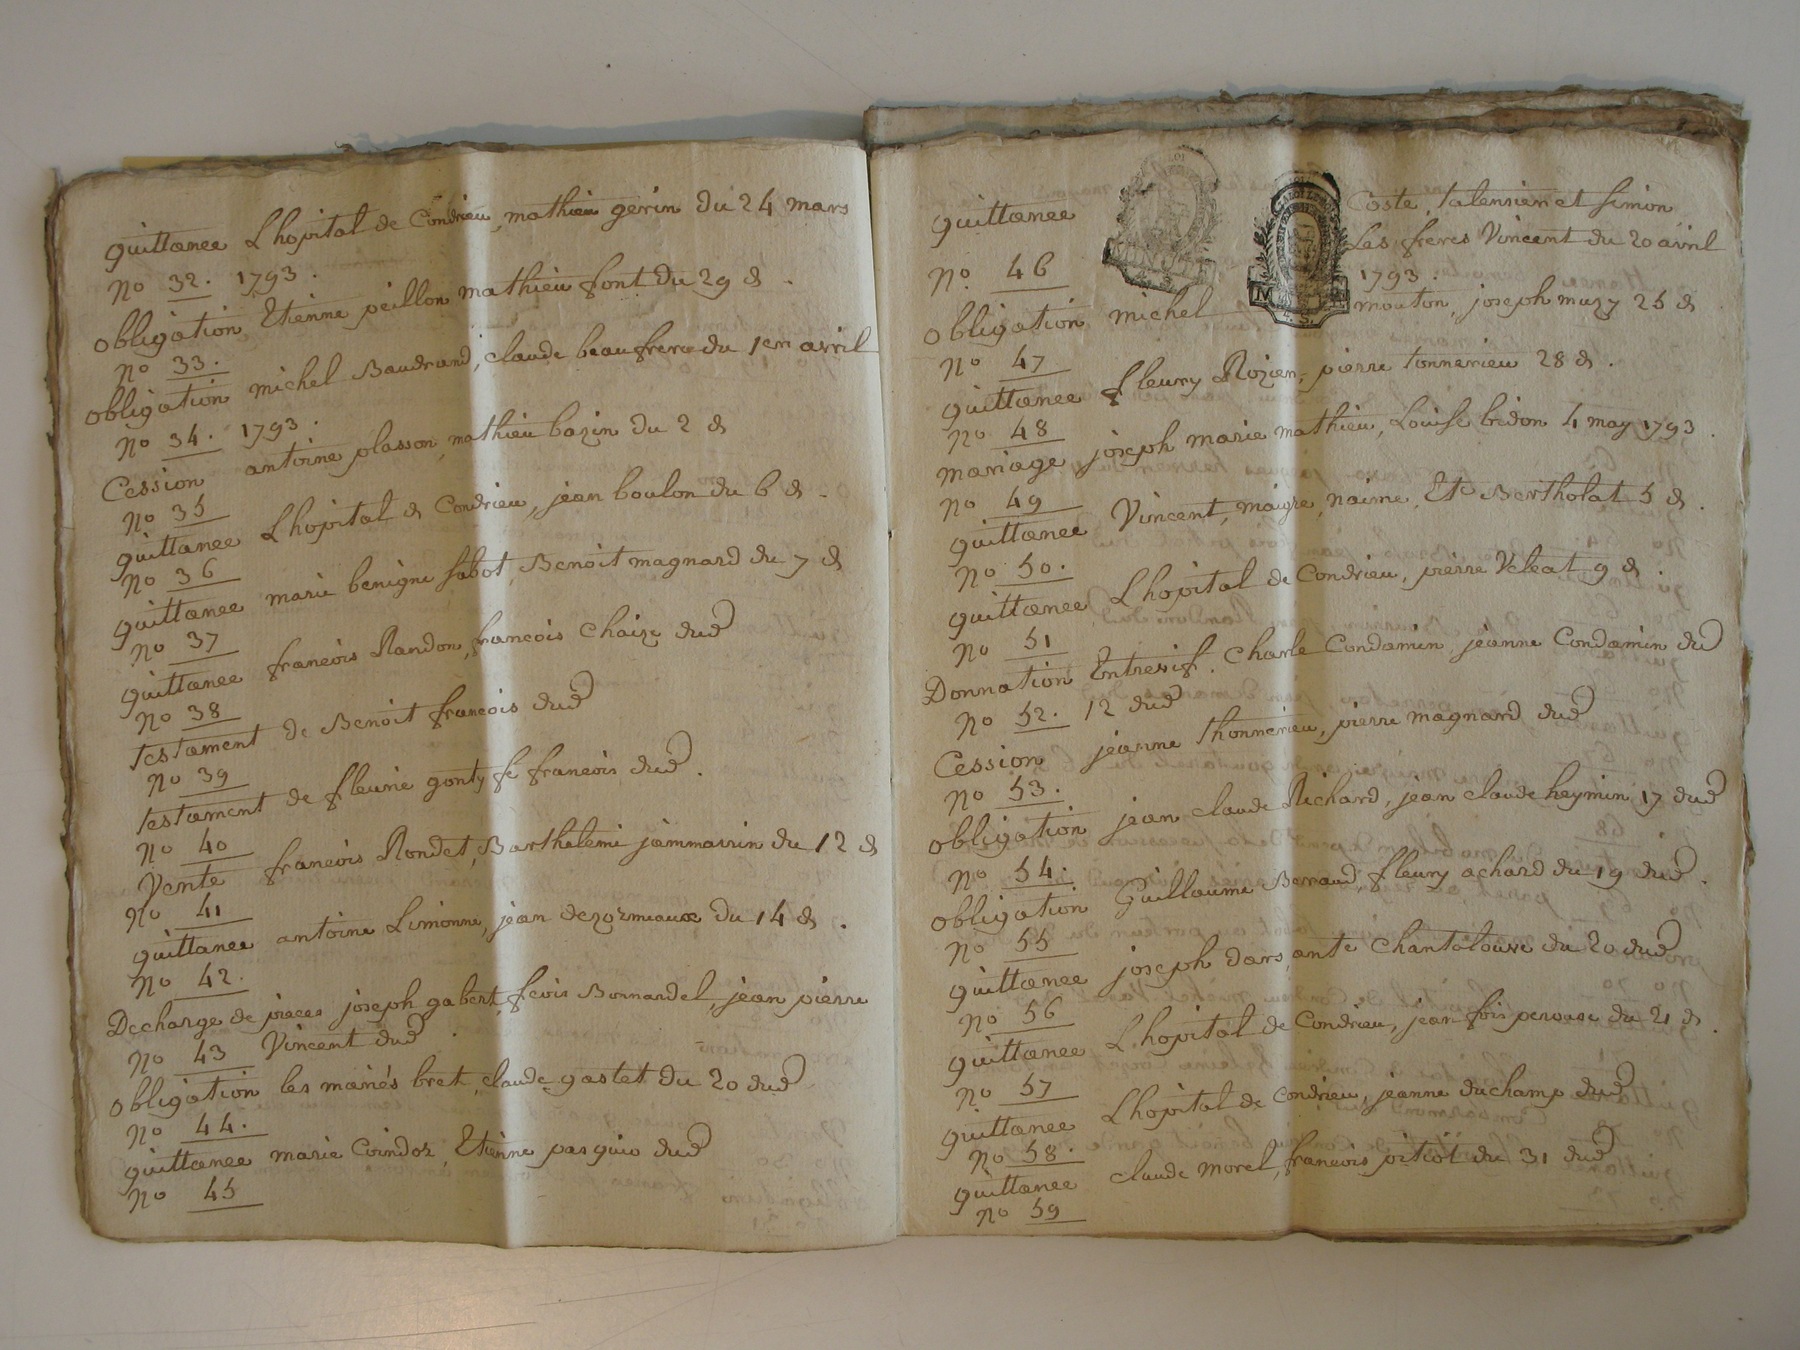 quittance Lhopital de Condrieu, mathieu gerin du 24 mars
No 32. 1793.
obligation Etienne peillon mathieu font du 29 d.
No 33.
obligation michel Baudrand, claude beaufrere du 1er avril
No 34. 1793.
Cession antoine plasson, mathieu bazin du 2 d
No 35
quittance Lhopital d Condrieu, jean boulon du 6 d.
No 36
quittance marie benigne sabot, Benoit magnard du 7 d
No 37
quittance francois Randon, francois Chaize dud
No 38
testament de Benoit francois dud
No 39
testament de fleurie gonty fe francois dud.
No 40
Vente francois Rondet, Barthelemi jammarin du 12 d
No 41
quittance antoine Limonne, jean dezormeaux du 14 d.
No 42.
Decharge de pieces joseph gabert, fcois Bonnardel, jean pierre
No 43 Vincent dud
obligation les mariés bret, claude gastet du 20 dud
No 44.
quittance marie Coindoz, Etienne pasquio dud
No 45
quittance Coste, talennier et simon
Les freres Vincent du 20 avril
No 46 1793.
obligation michel mouton, joseph muzy 25 d
No 47
quittance fleury Rozier, pierre tonnerieu 28 d.
No 48
mariage joseph marie mathieu, Louise bredon 4 may 1793.
No 49
quittance Vincent, maigre, naime, Et Bertholat 5 d.
No 50.
quittance Lhopital de Condrieu, pierre Veleat 9 d
No 51
Donnation Entrevif. Charle Condamin, jeanne Condamin du
No 52. 12 dud
Cession jeanne thonnerieu, pierre magnard dud
No 53.
obligation jean claude Richard, jean claude heymin 17 dud
No 54.
obligation Guillaume Berraud, fleury achard du 19 dud.
No 55
quittance joseph dars, ante Chantalouve du 20 dud
No 56
quittance Lhopital de Condrieu, jean fois perouse du 21 d.
No 57
quittance Lhopital de Condrieu, jeanne duchamp dud
No 58.
quittance claude morel, francois pitiot du 31 dud
No 59